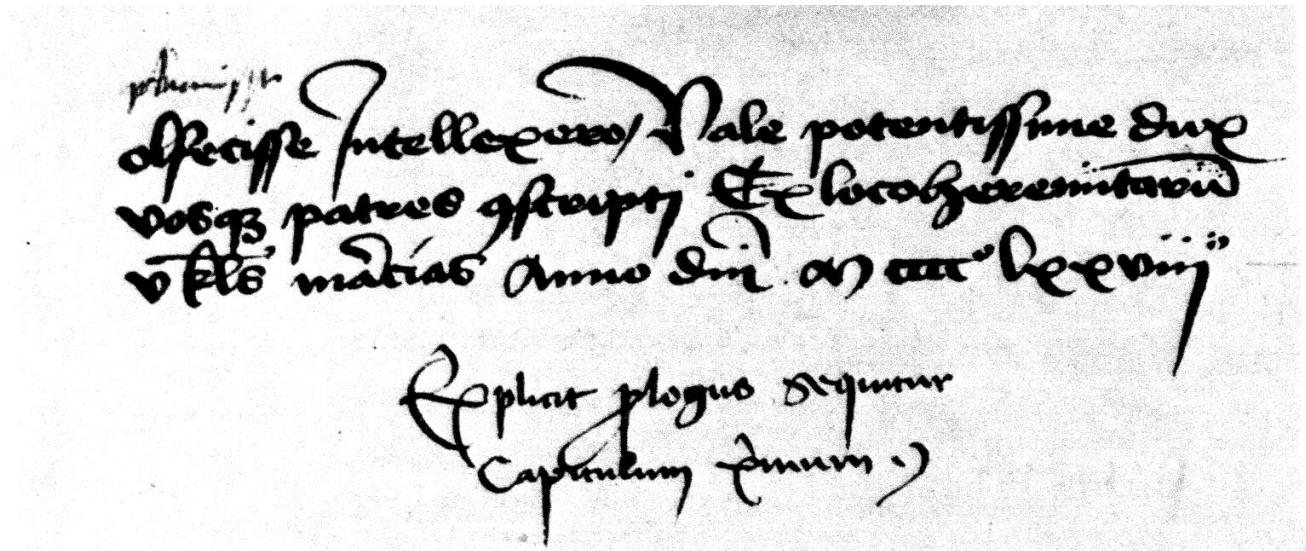 olfecisse Intellexero / Vale potentissime dux
vosqꝫ patres ꝯscripti Ex loco heremitarū
v kls̄ mārcias Anno dm̄ M cccc° lxxviii
Explicit ꝓlogus sequitur
Capitulum pͥmum